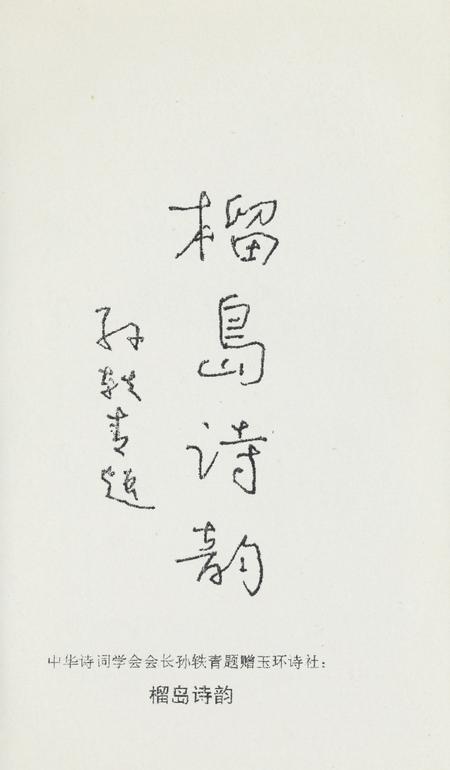 榴島诗韵
孙轶青题
中华诗词学会会长孙轶青题赠玉环诗社：
榴岛诗韵